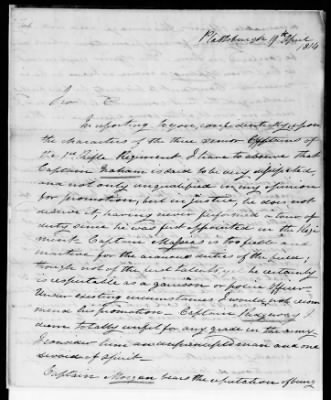 Plattsburgh 9th April
1814
In reporting to you, confidentially, upon
the characters of the three senior Captains of
the 1st Rifle Regiment I have to observe that
Captain is said to be very dissipated,
and not only unqualified in my opinion
for promotion, but in justice, he does not
deserve it, having never performed a tour of
duty since he was first appointed in the Regi
ment. Captain is too feeble and
inactive for the arduous duties of the field,
though not of the best talents, yet he certainly
is respectable as a garrison or police officer
Under existing circumstances I would not recom
mend his promotion. Captain I
deem totally unfit for any grade in the army.
I consider him an unprincipled man and one
devoid of spirit—
Captain Morgan bears the reputation of being